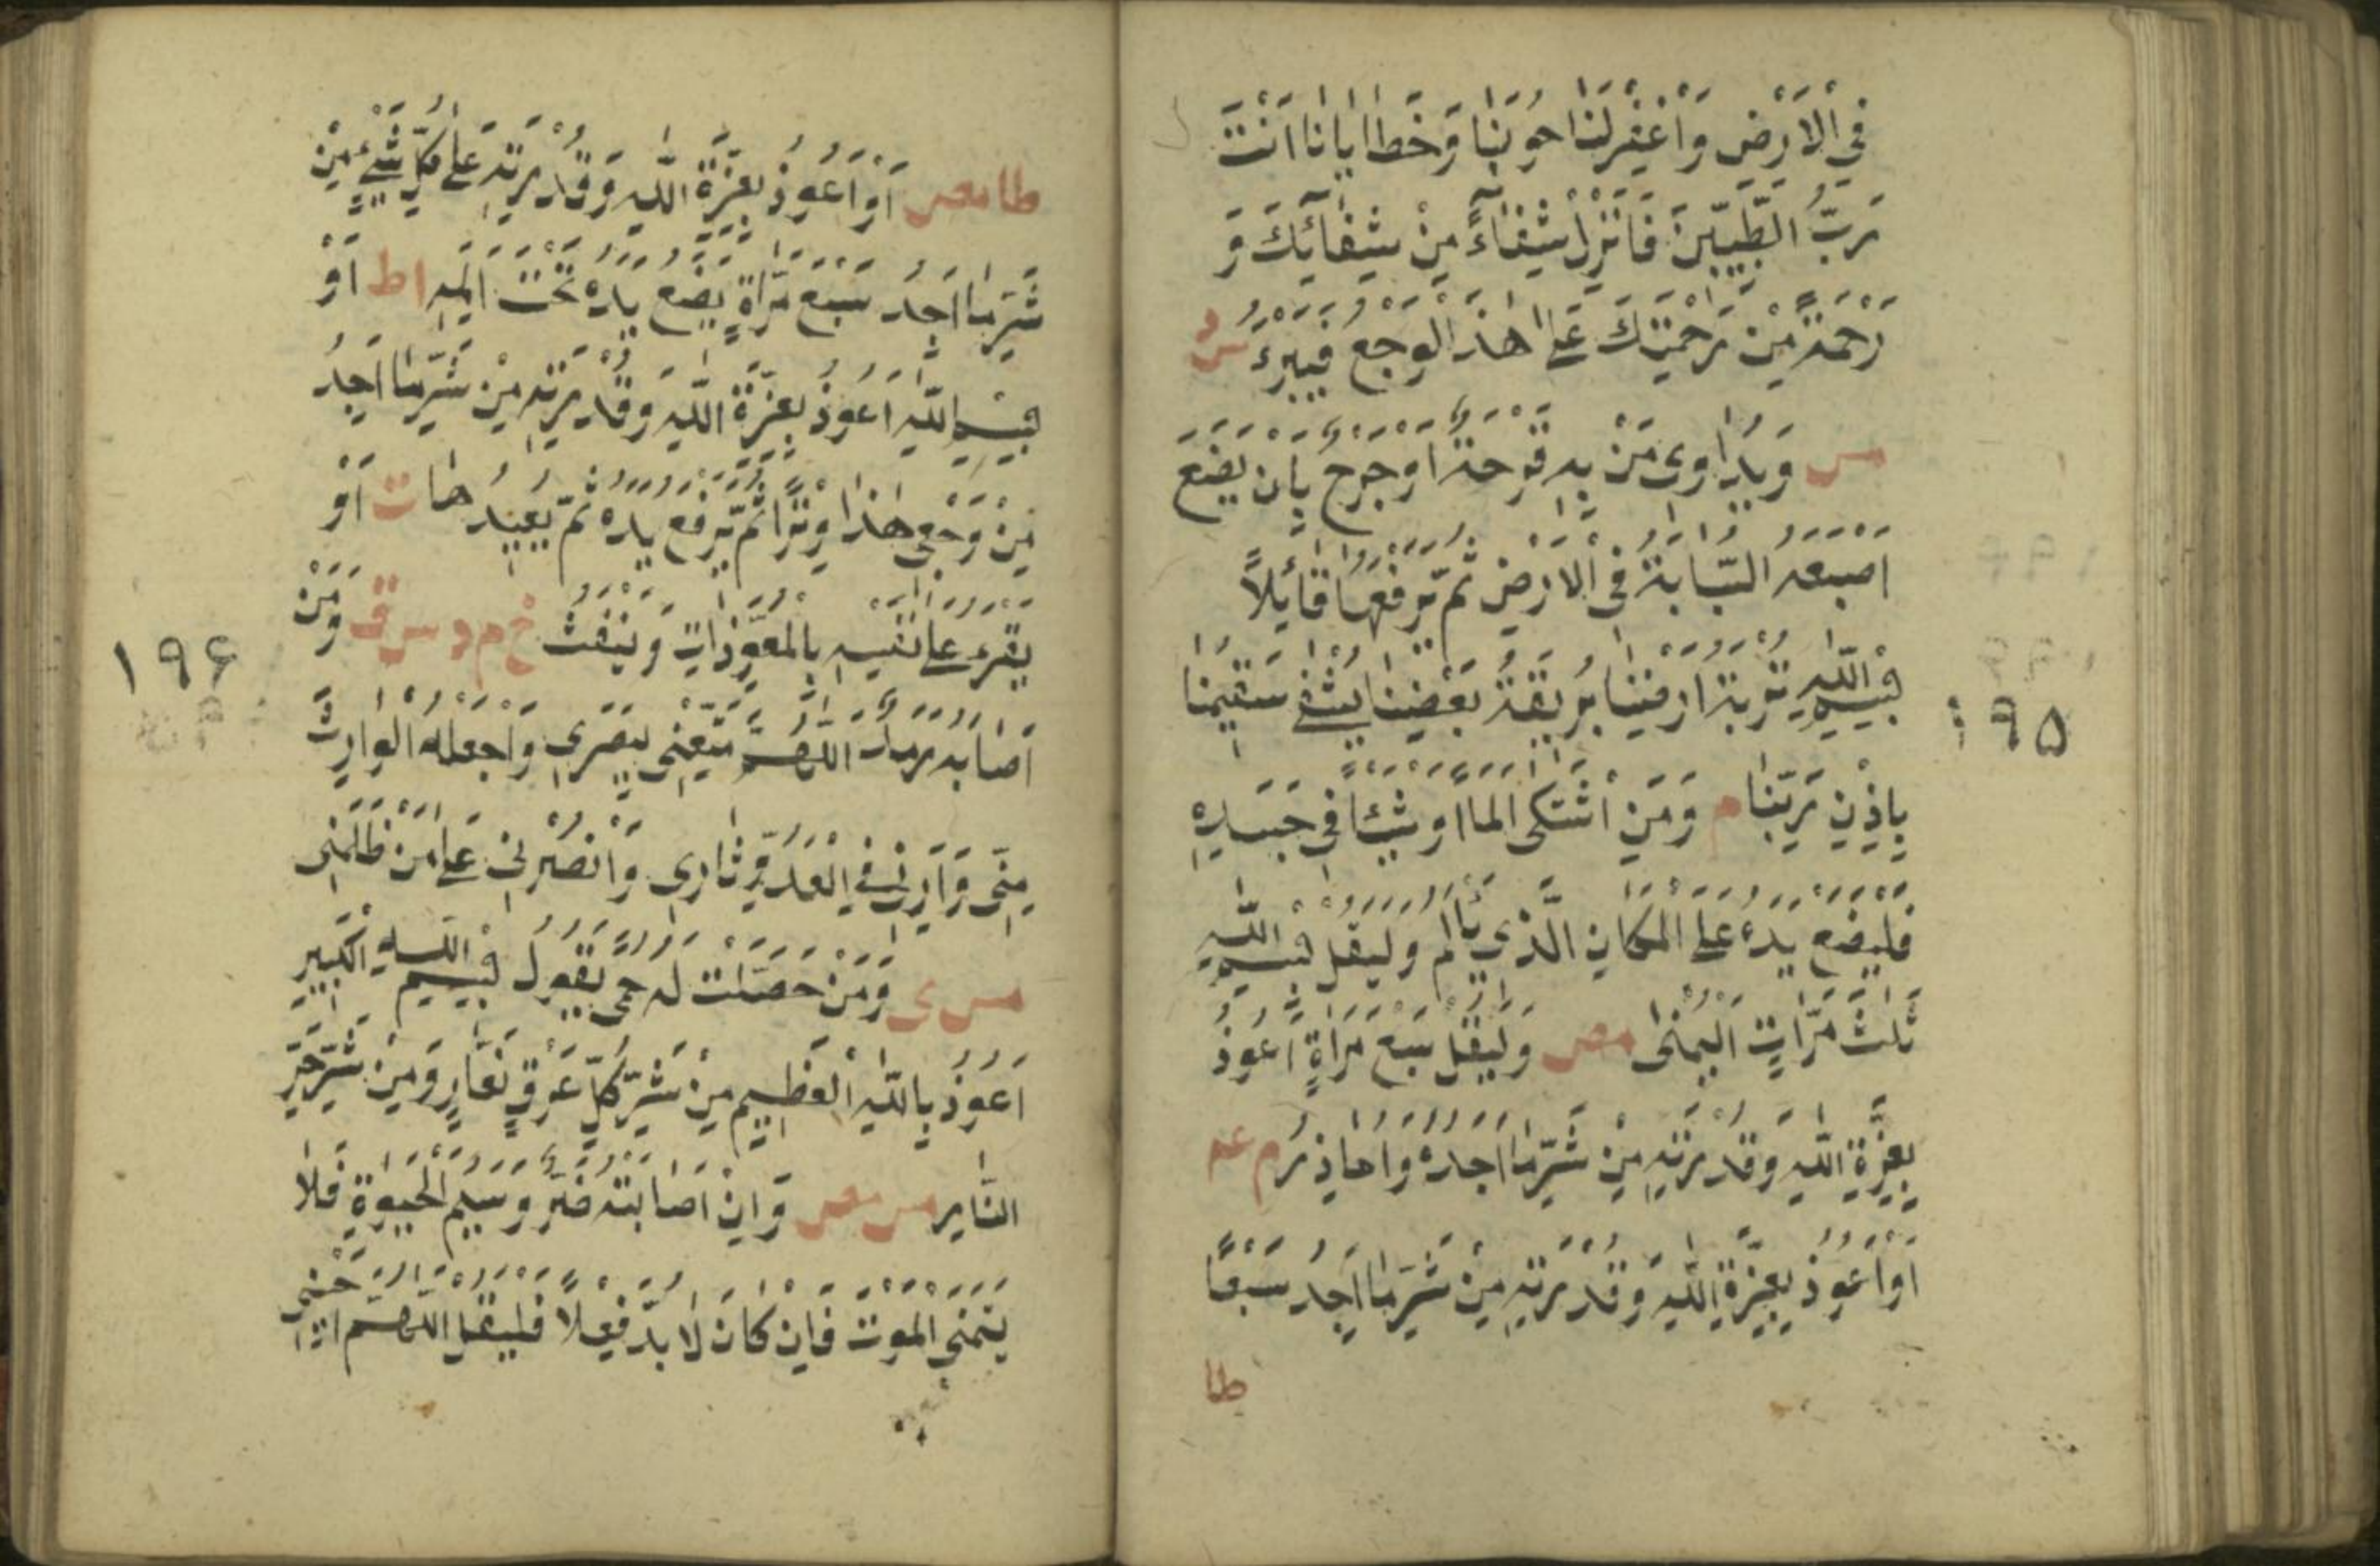 فِي الْاَرْضِ وَاغْفِرْلَنَا حُوْبَنَا وَخَطَايَانَا اَنْتَ
رَبُّ الطَّيِّبِيْنَ فَانْزِلْ شِفَاءً مِنْ شِفَائِكَ وَ
رَحْمَةً مِنْ رَحْمَتِكَ عَلٰى هٰذَ الْوَجَعِ فَيَبْرَءُ س د
مس وَيُدَاوى مَنْ بِهٖ قَرْحَةٌ اَوْجَرْحٌ بِاَنْ يَضَعَ
اَصْبَعَهُ السَّبَّابَةَ فِى الْاَرْضِ ثُمَّ يَرْفَعُهَا قَائِلًا
بِسْمِ اللّٰهِ تُرْبَةُ اَرْضِنَا بِرِيْقَةِ بَعْضِنَا يُشْفٰى سَقِيْمُنَا
بِاِذْنِ رَبِّنَا م وَمَنِ اشْتَكٰى اَلَمًا اَوْ شَيْئًا فِى جَسَدِهٖ
فَلْيَضَعْ يَدَهُ عَلَى الْمَكَانِ الَّذِى يَأْلَمُ وَلْيَقُلْ بِسْمِ اللّٰهِ
ثَلٰثَ مَرَّاتٍ الْيُمْنٰى مص وَلْيَقُلْ سَبْعَ مَرَاةٍ اَعُوْذُ
بِعِزَّةِ اللّٰهِ وَقُدْرَتِهٖ مِنْ شَرِّمَا اَجِدُهُ وَاُحَاذِرُ م عه
اَوْ اَعُوْذُ بِعِزَّةِ اللّٰهِ وَقُدْرَتِهٖ مِنْ شَرِّمَا اَجِدُ سَبْعًا
طا
١٩۵
طا مص اَوْ اَعُوْذُ بِعِزَّةِ اللّٰهِ وَقُدْرَتِهٖ عَلٰى كُلِّ شَىْءٍ مِنْ
شَرِّمَا اَجِدُ سَبْعَ مَرَّاةٍ يَضَعُ يَدَهُ تَحْتَ اَلَمِهٖ ا ط اَوْ
بِسْمِ اللّٰهِ اَعُوْذُ بِعِزَّةِ اللّٰهِ وَقُدْرَتِهٖ مِنْ شَرِّمَا اَجِدُ
مِنْ وَجَعِى هٰذَا وِتْرًا ثُمَّ يَرْفَعُ يَدَهُ ثُمَّ يُعِيْدُهَا ت اَوْ
يَقْرَءُ عَلٰى نَفْسِهٖ بِالْمُعَوِّذَاتِ وَيَنْفُثُ خ م د س ق وَمَنْ
اَصَابَهُ رَمَدٌ اَللّٰهُمَّ مَتِّعْنِى بِبَصَرِى وَاجْعَلْهُ الْوَارِثَ
مِنِّى وَاَرِنِى فِى الْعَدُوِّ ثَارِى وَانْصُرْنِى عَلٰى مَنْ ظَلَمَنِى
مس ى وَمَنْ حَصَلَتْ لَهُ حُمّٰى يَقُوْلُ بِسْمِ اللّٰهِ الْكَبِيْرِ
اَعُوْذُ بِاللّٰهِ الْعَظِيْمِ مِنْ شَرِّ كُلِّ عَرْقٍ نَعَّارٍ وَمِنْ شَرِّحَرِّ
النَّارِ مس مص وَاِنْ اَصَابَتْهُ ضُرٌّ وَسَئِمَ الْحَيٰوةَ فَلَا
يَتَمَنّٰى الْمَوْتَ فَاِنْ كَانَ لَا بُدَّ فَعِلًا فَلْيَقُلْ اَللّٰهُمَّ اَحْيِنِى
١٩۶